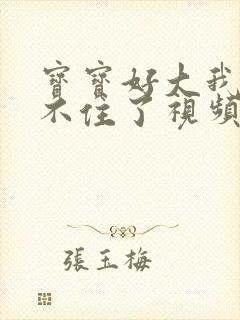 寶寶好大我
不住了視頻
張玉梅